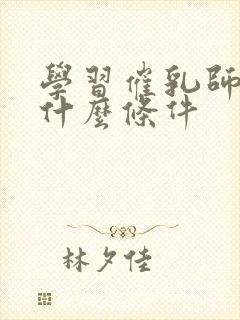 學習催乳師
什麼條件
林夕佳